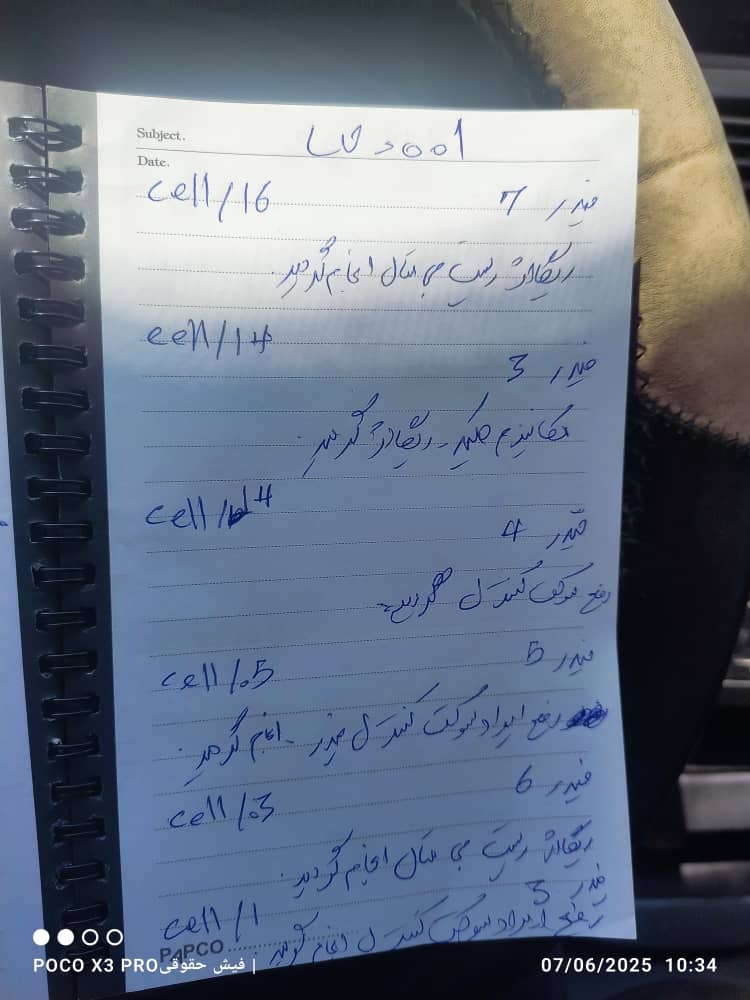 Subject.
LV 2001
Date.
cell/16 فیدر 7
ریگلاژ ریست بی متال انجام گردید.
cell/14
فیدر 3
مکانیزم ریگلاژ گردید.
cell/4
فیدر 4
رفع سوکت کنترل گردید
فیدر 5
cell/05
رفع ایراد سوکت کنترل فیدر انجام گردید.
فیدر 6
cell/03
ریگلاژ ریست بی متال انجام گردید.
فیدر 3
cell/1
رفع ایراد سوکت کنترل انجام گردید
PAPCO
POCO X3 PRO فیش حقوقی |
07/06/2025 10:34